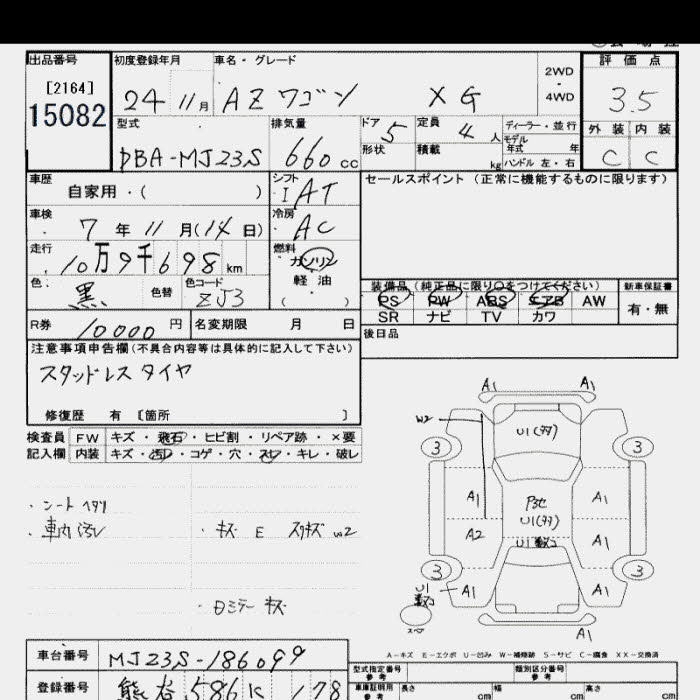 出品番号 初度登録年月 車名・グレード 評価点
[2164]
15082
24 11月 AZワゴン XG
2WD
・
4WD
3.5
型式 排気量 ドア 定員 ディーラー・並行 外装 内装
DBA-MJ23S 660cc 5 4人
形状 積載 kg モデル年式 年
ハンドル 左・右
C C
車歴 シフト セールスポイント (正常に機能するものに限ります)
自家用・( )
I AT
車検 冷房
7年11月(14日) AC
走行 燃料
10万9千698km ガソリン
軽油
( )
色: 色替 色コード
黒 ZJ3
装備品 (純正品に限り○をつけてください) 新車保証書
PS PW ABS エアB AW 有・無
SR ナビ TV カワ
R券 10000円 名変期限 月 日
後日品
注意事項申告欄(不具合内容等は具体的に記入して下さい)
スタッドレスタイヤ
修復歴 有 [箇所 ]
検査員 FW キズ・飛石・ヒビ割・リペア跡・×要
記入欄 内装 キズ・汚レ・コゲ・穴・スレ・キレ・破レ
・シートヘタリ
・車内汚レ
・キズ E スリキズ W2
・Dミラーキズ
A1 A1
W2 U1(多)
3 3
A1 A1
P3也
U1(多)
A2 A1
3 3
U1
A1 A1
A1
A-キズ E-エクボ U-凹み W-補修跡 S-サビ C-腐食 XX-交換済
車台番号 MJ23S-186099
型式指定番号 参考 類別区分番号 参考
登録番号 熊谷 586 に 178
車庫証明用 参考 長さ cm 幅 cm 高さ cm